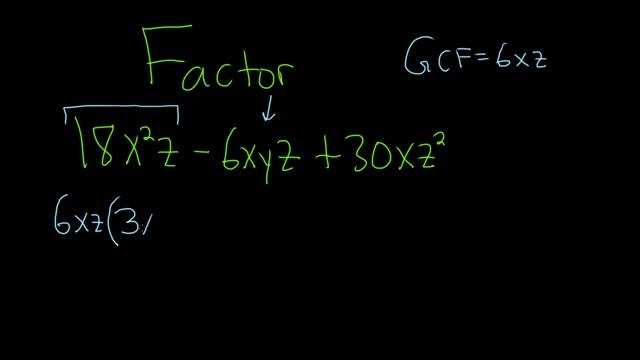 Factor
GCF=6xz
18x²z - 6xyz + 30xz²
6xz(3